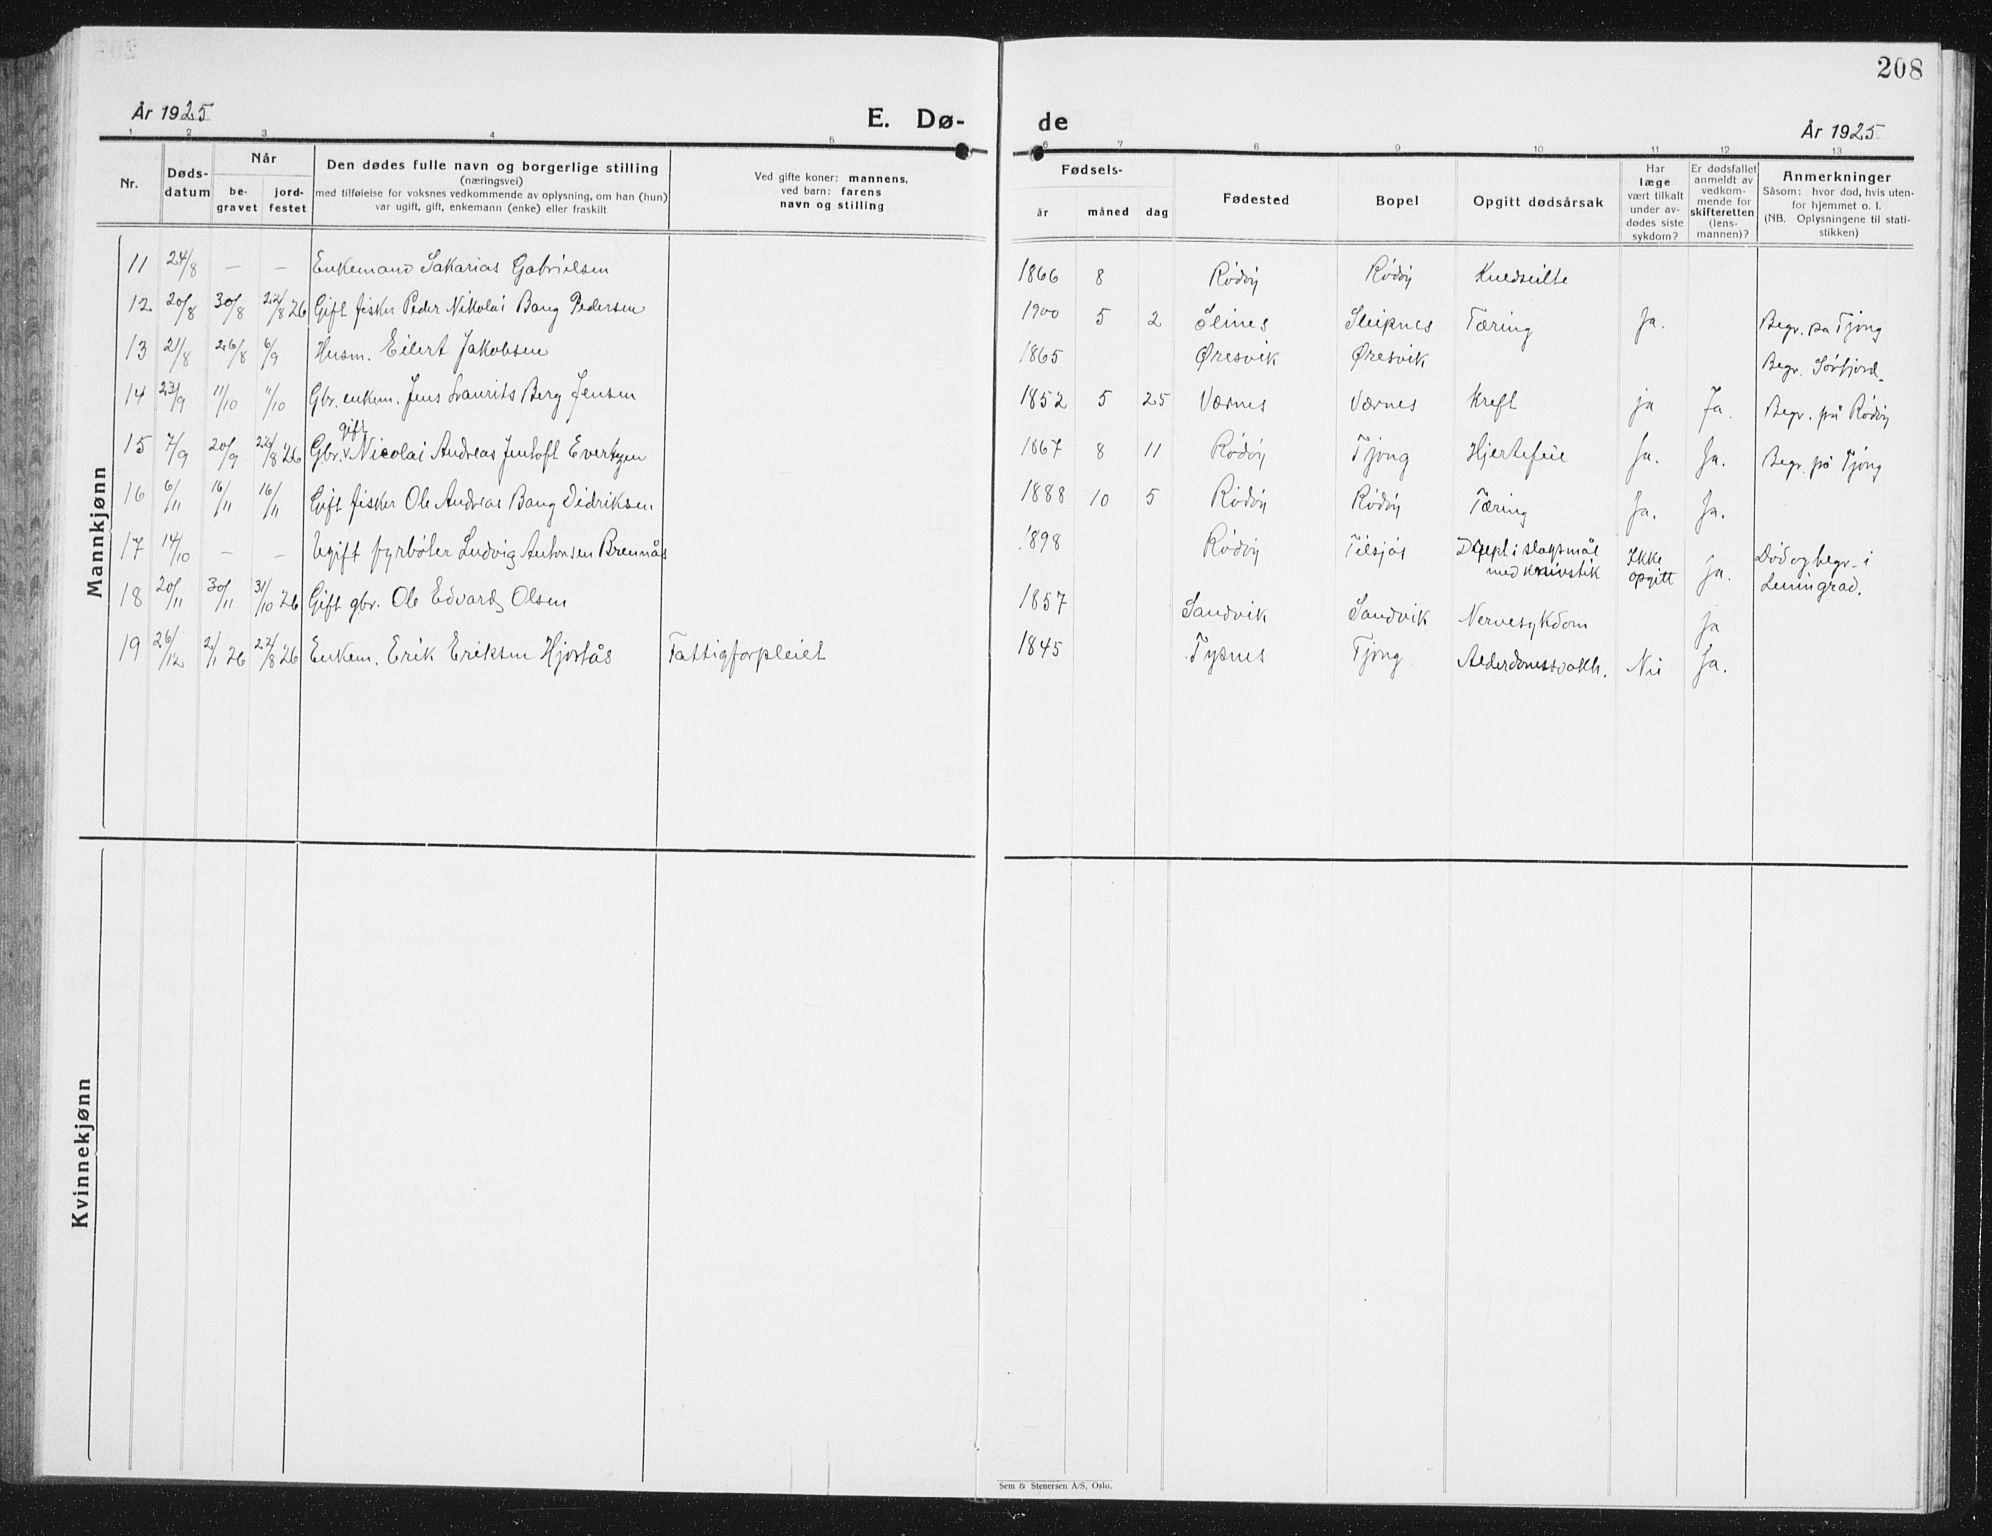 208
År 1925
E. Dø-
de
År 1925
1 2 3 4 5
6 7 8 9 10 11 12 13
Nr.
Døds-
datum
Når
be-
gravet
jord-
festet
Den dødes fulle navn og borgerlige stilling
(næringsvei)
med tilføielse for voksnes vedkommende av oplysning, om han (hun)
var ugift, gift, enkemann (enke) eller fraskilt
Ved gifte koner: mannens,
ved barn: farens
navn og stilling
Fødsels-
år måned dag
Fødested
Bopel
Opgitt dødsårsak
Har
læge
vært tilkalt
under av-
dødes siste
sykdom?
Er dødsfallet
anmeldt av
vedkom-
mende for
skifteretten
(lens-
mannen)?
Anmerkninger
Såsom: hvor død, hvis uten-
for hjemmet o. l.
(NB. Oplysningene til stati-
stikken)
Mannkjønn
11 24/8 – – Enkemand Sakarias Gabrielsen 1866 8 Rødøy Rødøy
12 20/8 30/8 22/8 26 Gift fisker Peder Nikolai Bang Pedersen 1900 5 2 Selsnes Tæring Ja. Begr. på Tjong
13 21/8 26/8 6/9 Husm. Eilert Jakobsen 1865 Øresvik Øresvik Begr. Sørfjord
14 23/9 11/10 11/10 Gbr. enkem. Jens Laurits Berg Jensen 1852 5 25 Værnes Værnes Kreft ja Ja. Begr. på Rødøy
15 7/9 20/9 22/8 26 Gbr. gift Nicolai Andreas Jentoft Evertsen 1867 8 11 Rødøy Tjong Hjertefeil Ja. Ja. Begr. på Tjong
16 6/11 16/11 16/11 Gift fisker Ole Andreas Bang Didriksen 1888 10 5 Rødøy Rødøy Tæring Ja. Ja.
17 14/10 – – Ugift fyrbøter Ludvig Antonsen Brennås 1898 Rødøy Drept i slagsmål
med knivstik Ikke
opgitt ja. Død og begr. i
Leningrad.
18 20/11 30/11 31/10 26 Gift gbr. Ole Edvard Olsen 1857 Sandvik Sandvik Nervesykdom ja
19 26/12 2/1 26 22/8 26 Enkem. Erik Eriksen Hjortås Fattigforpleiet 1845 Tjong Alderdomssvakh. Nei Ja.
Kvinnekjønn
Sem & Stenersen A/S, Oslo.